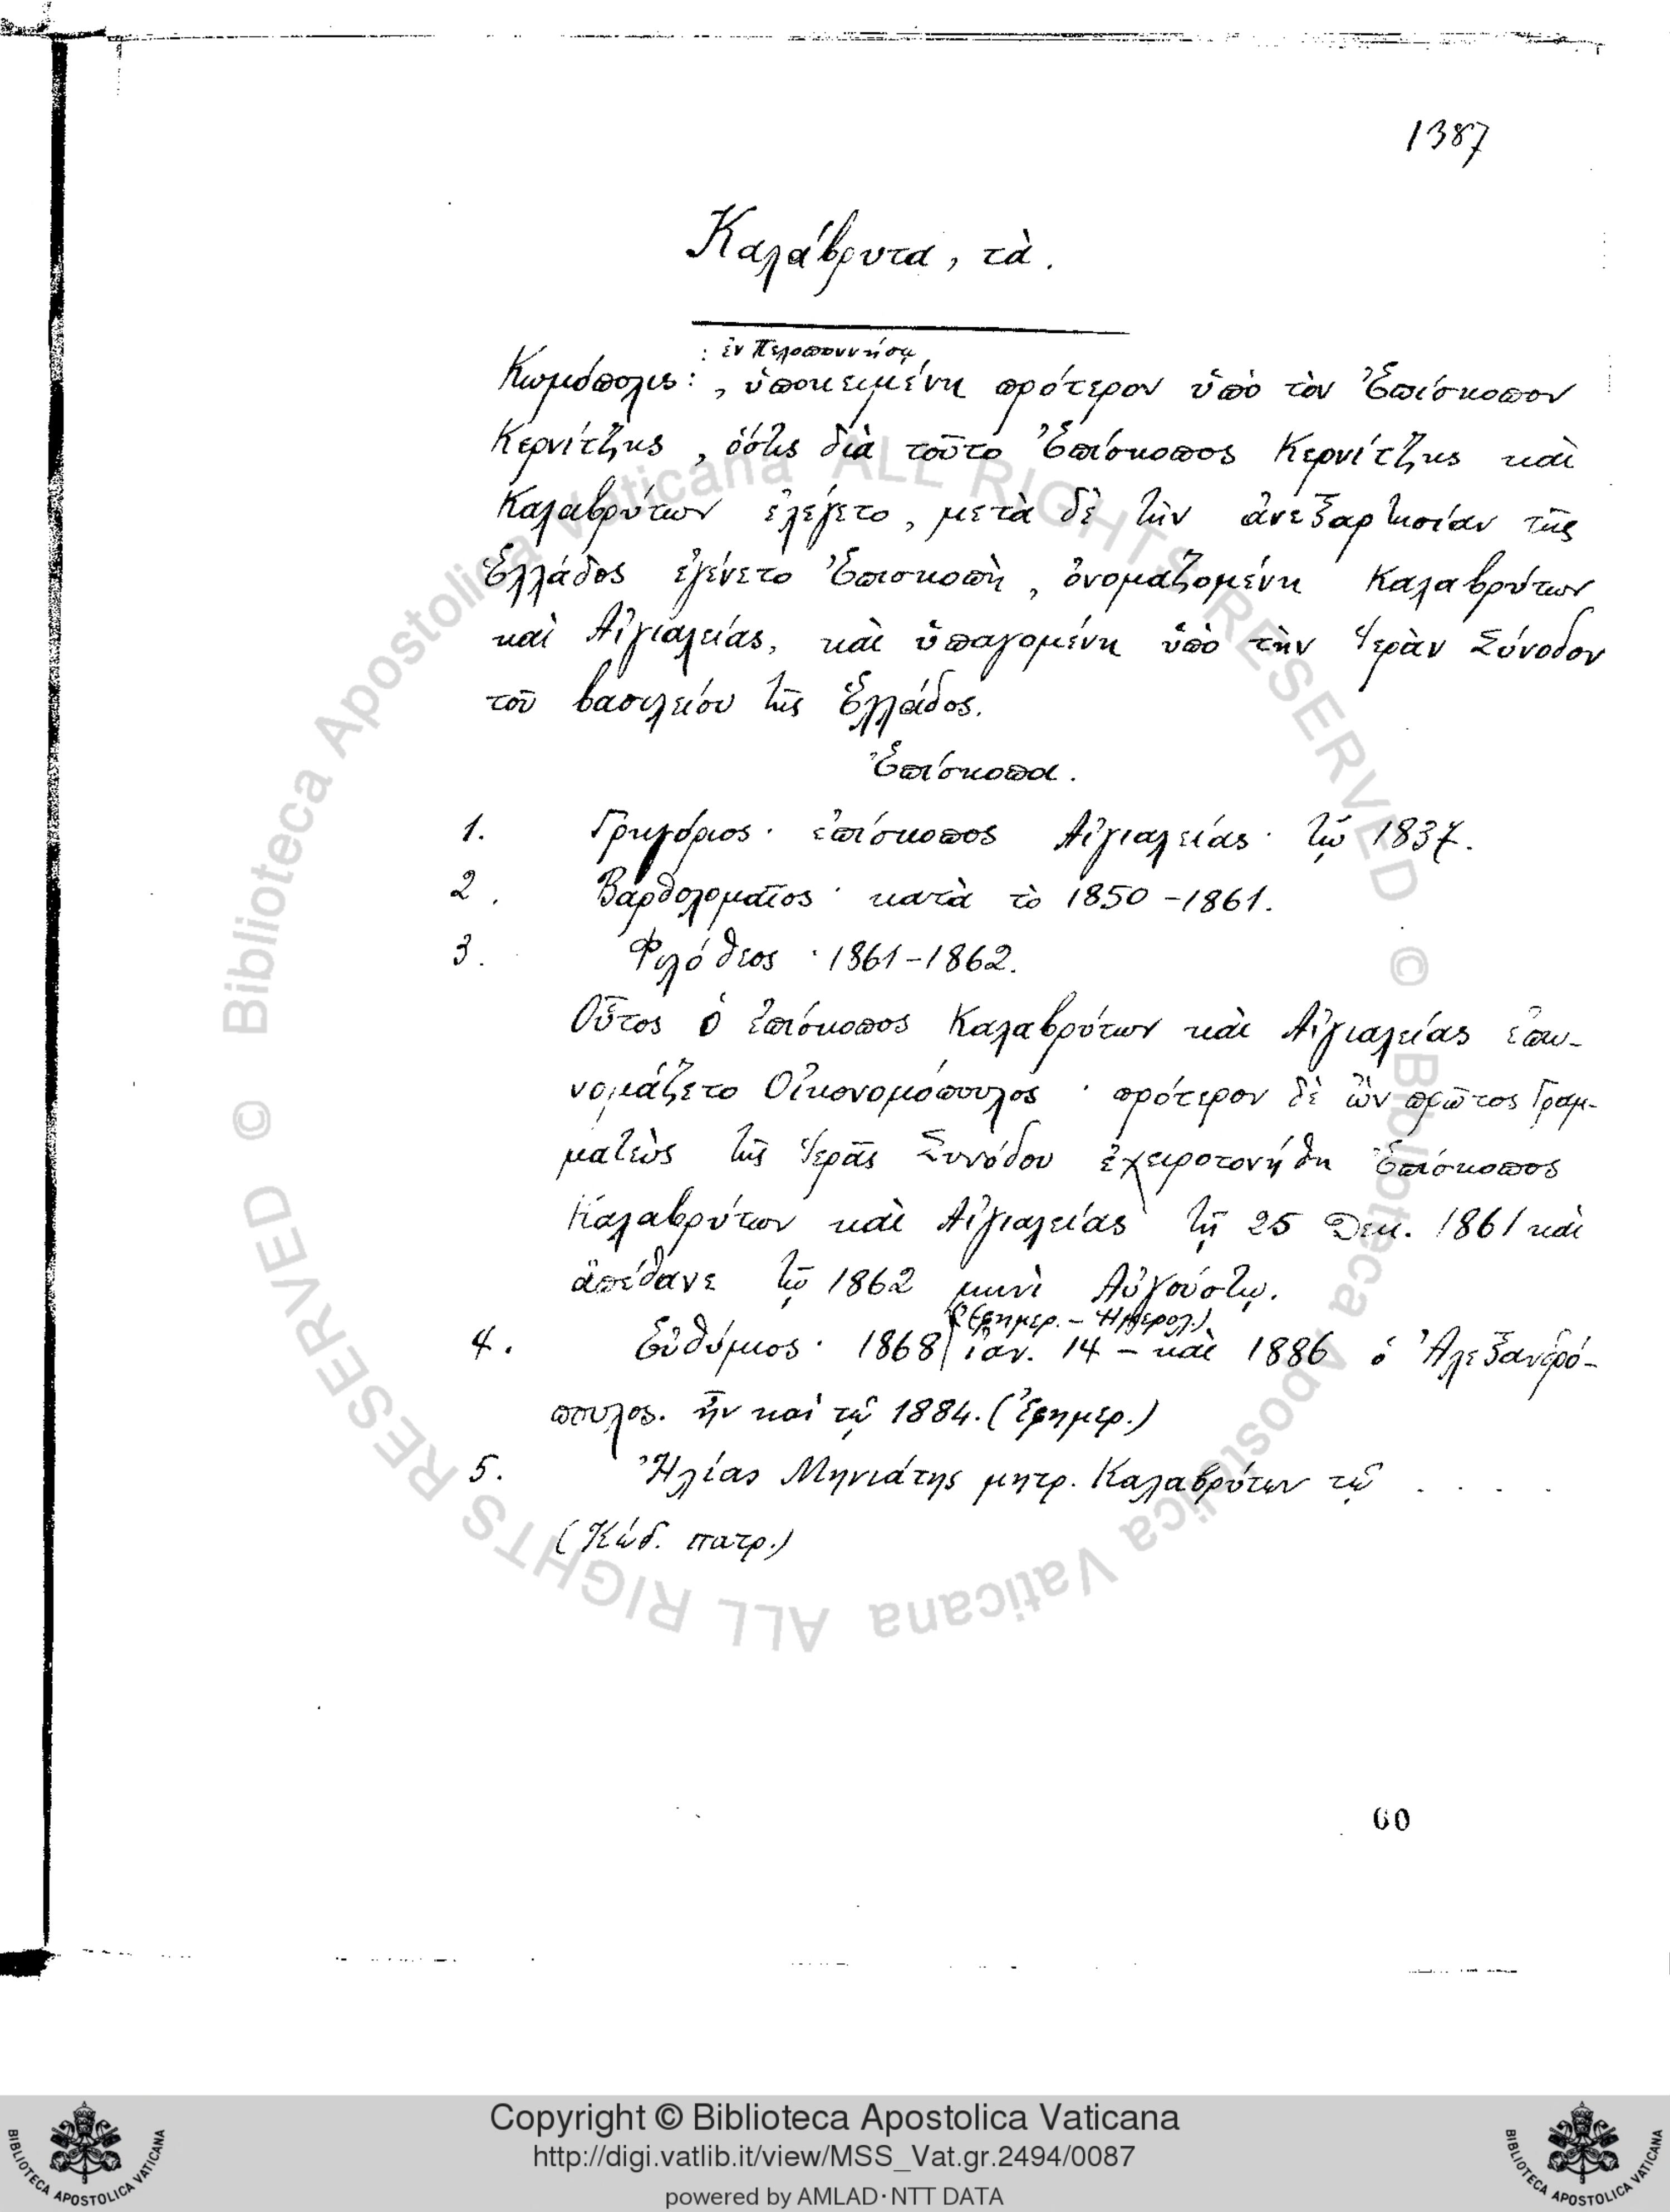 1387
Καλάβρυτα, τὰ.
: ἐν Πελοποννήσῳ
Κωμόπολις: , ὑποκειμένη πρότερον ὑπὸ τὸν Ἐπίσκοπον
Κερνίτζης , ὅστις διὰ τοῦτο Ἐπίσκοπος Κερνίτζης καὶ
Καλαβρύτων ἐλέγετο, μετὰ δὲ τὴν ἀνεξαρτησίαν τῆς
Ἑλλάδος ἐγένετο Ἐπισκοπὴ, ὀνομαζομένη Καλαβρύτων
καὶ Αἰγιαλείας, καὶ ὑπαγομένη ὑπὸ τὴν Ἱερὰν Σύνοδον
τοῦ βασιλείου τῆς Ἑλλάδος.
Ἐπίσκοποι.
1. Γρηγόριος· ἐπίσκοπος Αἰγιαλείας· τῷ 1837.
2. Βαρθολομαῖος· κατὰ τὸ 1850-1861.
3. Φιλόθεος · 1861-1862.
Οὗτος ὁ ἐπίσκοπος Καλαβρύτων καὶ Αἰγιαλείας ἐπω-
νομάζετο Οἰκονομόπουλος · πρότερον δὲ ὢν πρῶτος Γραμ-
ματεὺς τῆς Ἱερᾶς Συνόδου ἐχειροτονήθη Ἐπίσκοπος
Καλαβρύτων καὶ Αἰγιαλείας τῇ 25 Δεκ. 1861 καὶ
ἀπέθανε τῷ 1862 μηνὶ Αὐγούστῳ.
(Ἐφημερ. - Ἡμερολ.)
4. Εὐθύμιος· 1868 ἰαν. 14 - καὶ 1886 ὁ Ἀλεξανδρό-
πουλος. ἦν καὶ τῷ 1884. (Ἐφημερ.)
5. Ἠλίας Μηνιάτης μητρ. Καλαβρύτων τῷ . . . .
(Κώδ. πατρ.)
60
© Biblioteca Apostolica Vaticana ALL RIGHTS RESERVED
© Biblioteca Apostolica Vaticana ALL RIGHTS RESERVED
Copyright © Biblioteca Apostolica Vaticana
http://digi.vatlib.it/view/MSS_Vat.gr.2494/0087
powered by AMLAD·NTT DATA
BIBLIOTECA APOSTOLICA VATICANA
BIBLIOTECA APOSTOLICA VATICANA